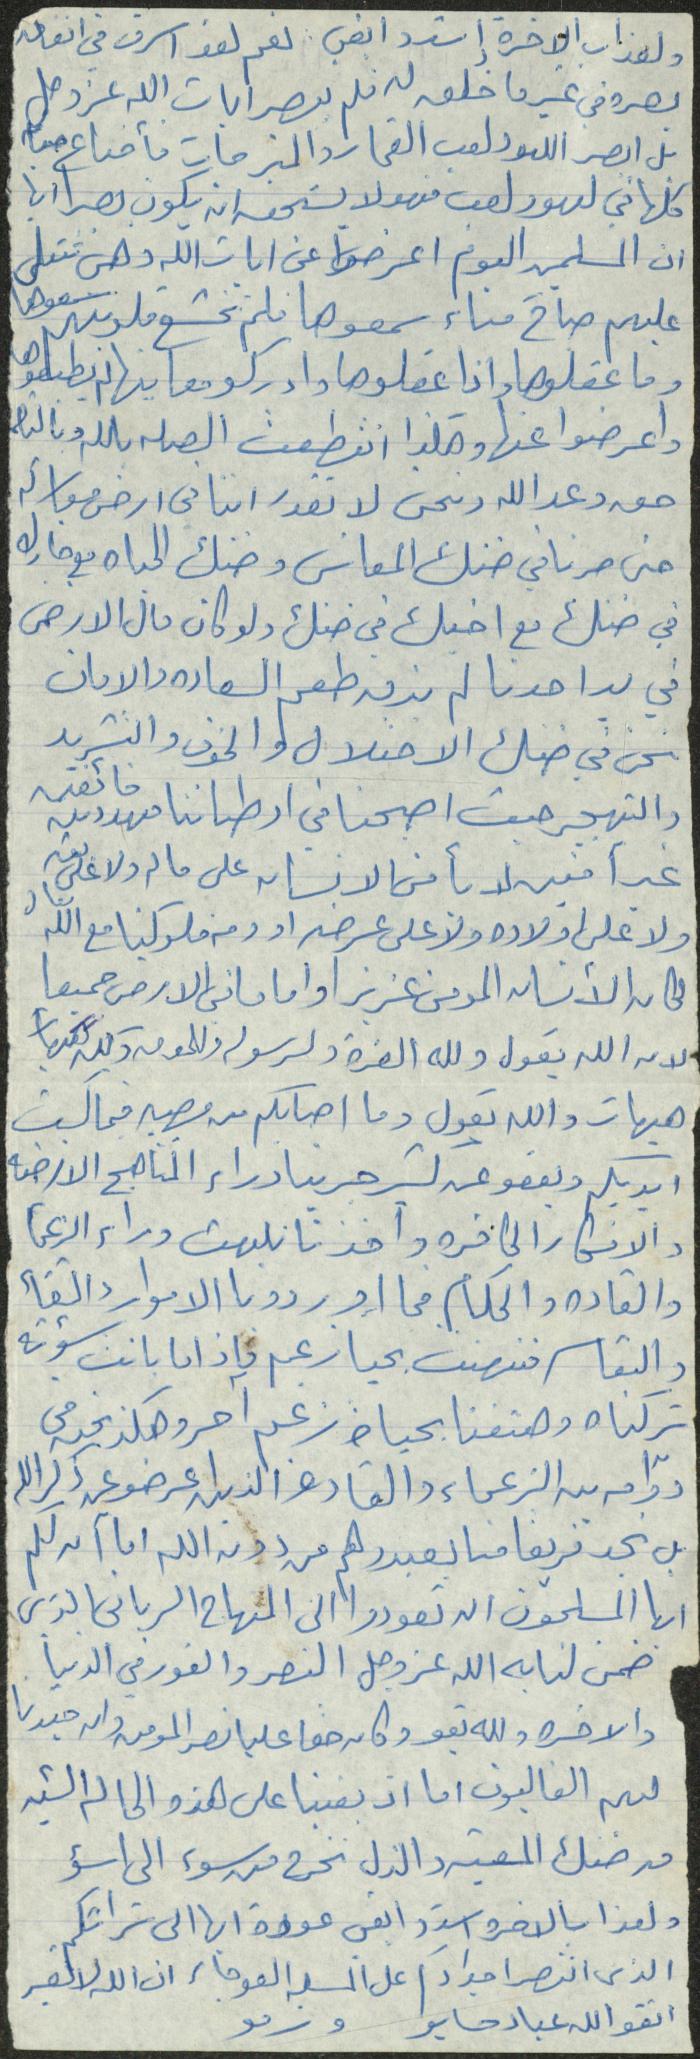 ولعذاب الاخرة اشد وابقى. نعم لقد اسرف في انفاق
بصره في غير ما خلق له فلم يبصر ايات الله عز وجل
بل ابصر اللهو ولعب القمار والمتبرجات فأضاع حياته
كلها في لهو ولعب فهو لا يستحق ان يكون بصيرا
ان المسلمين اليوم اعرضوا عن ايات الله وهى تتلى
عليهم صباح مساء سمعوها فلم تخشع قلوبهم سمعوها
وما عقلوها واذا عقلوها وادركو معاينها لم يطبقوها
واعرضوا عنها وهكذا انقطعت الصله بالله وبالتالى
حق وعد الله ونحن لا نقدر اننا فى ارض
حتى صرنا في ضنك المعاش وضنك الحياه مع جارك
في ضنك مع اخيك في ضنك ولو كان مال الارض
في يد احدنا لم يذق طعم السعاده والامان
نحن في ضنك الاحتلال والخوف والتشريد
والتهجير حيث اصبحنا في اوطاننا مهددين خائفين
غير آمنين لا يأمن الانسان على ماله ولا على بيته
ولا على اولاده ولا على عرضه او دمه فلو كنا مع الله
لكان الأنسان المومن عزيزا وامانا في الارض جميعا
لان الله يقول ولله العزة ولرسوله وللمومنين
هيهات والله يقول وما اصابكم من مصيبه فبما كسبت
ايديكم ويعفو عن كثير جرينا وراء المناهج الارضيه
والافكار الكافره وأخذنا نلهث وراء الزعما
والقاده والحكام فما اوردونا الا موارد الشقاء
والتعاسه فنهتف بحياة زعيم فإذا ما بانت سوئته
تركناه وهتفنا بحياة زعيم آخر وهكذا نحن في
دوامه بين الزعماء والقاده الذين اعرضو عن ذكر الله
بل نجد فريقا منا يعبدوهم من دون الله اما آن لكم
ايها المسلمون ان تعودوا الى المنهاج الربانى الذى
ضمن لنا به الله عز وجل النصر والفوز في الدنيا
والاخره والله يقو وكان حقا علينا نصر المومنين وان جندنا
لهم الغالبون اما ان بقينا على هذه الحاله السيئه
من ضنك المعيشه والذل نخرج من سوء الى اسؤ
ولعذاب الاخره اشد وابقى عودة ايها الى تراثكم
الذى انتصر اجدادكم على العوجاء ان الله لا يغير
اتقو الله عباد